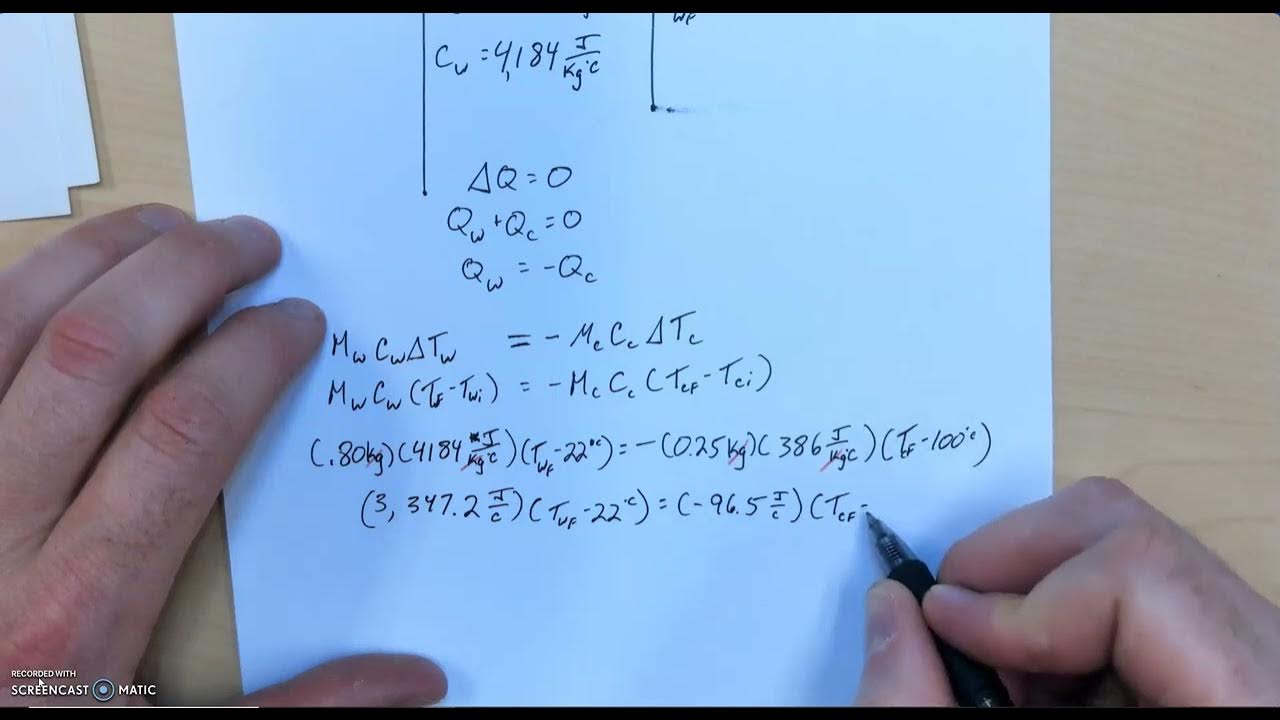 C_w = 4,184 J/kg°C
WF
ΔQ = 0
Q_w + Q_c = 0
Q_w = -Q_c
M_w C_w ΔT_w = - M_c C_c ΔT_c
M_w C_w (T_F - T_wi) = - M_c C_c (T_cF - T_ci)
(.80kg)(4184 J/kg°C)(T_wF - 22°C) = -(0.25kg)(386 J/kg°C)(T_F - 100°C)
(3,347.2 J/C)(T_wF - 22°C) = (-96.5 J/C)(T_cF -
RECORDED WITH
SCREENCAST MATIC